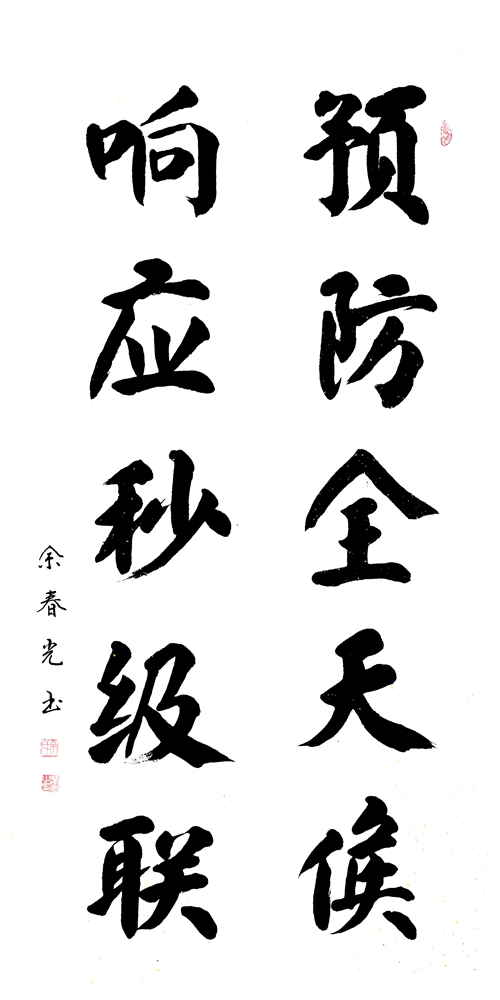 预防全天候
响应秒级联
余春光书